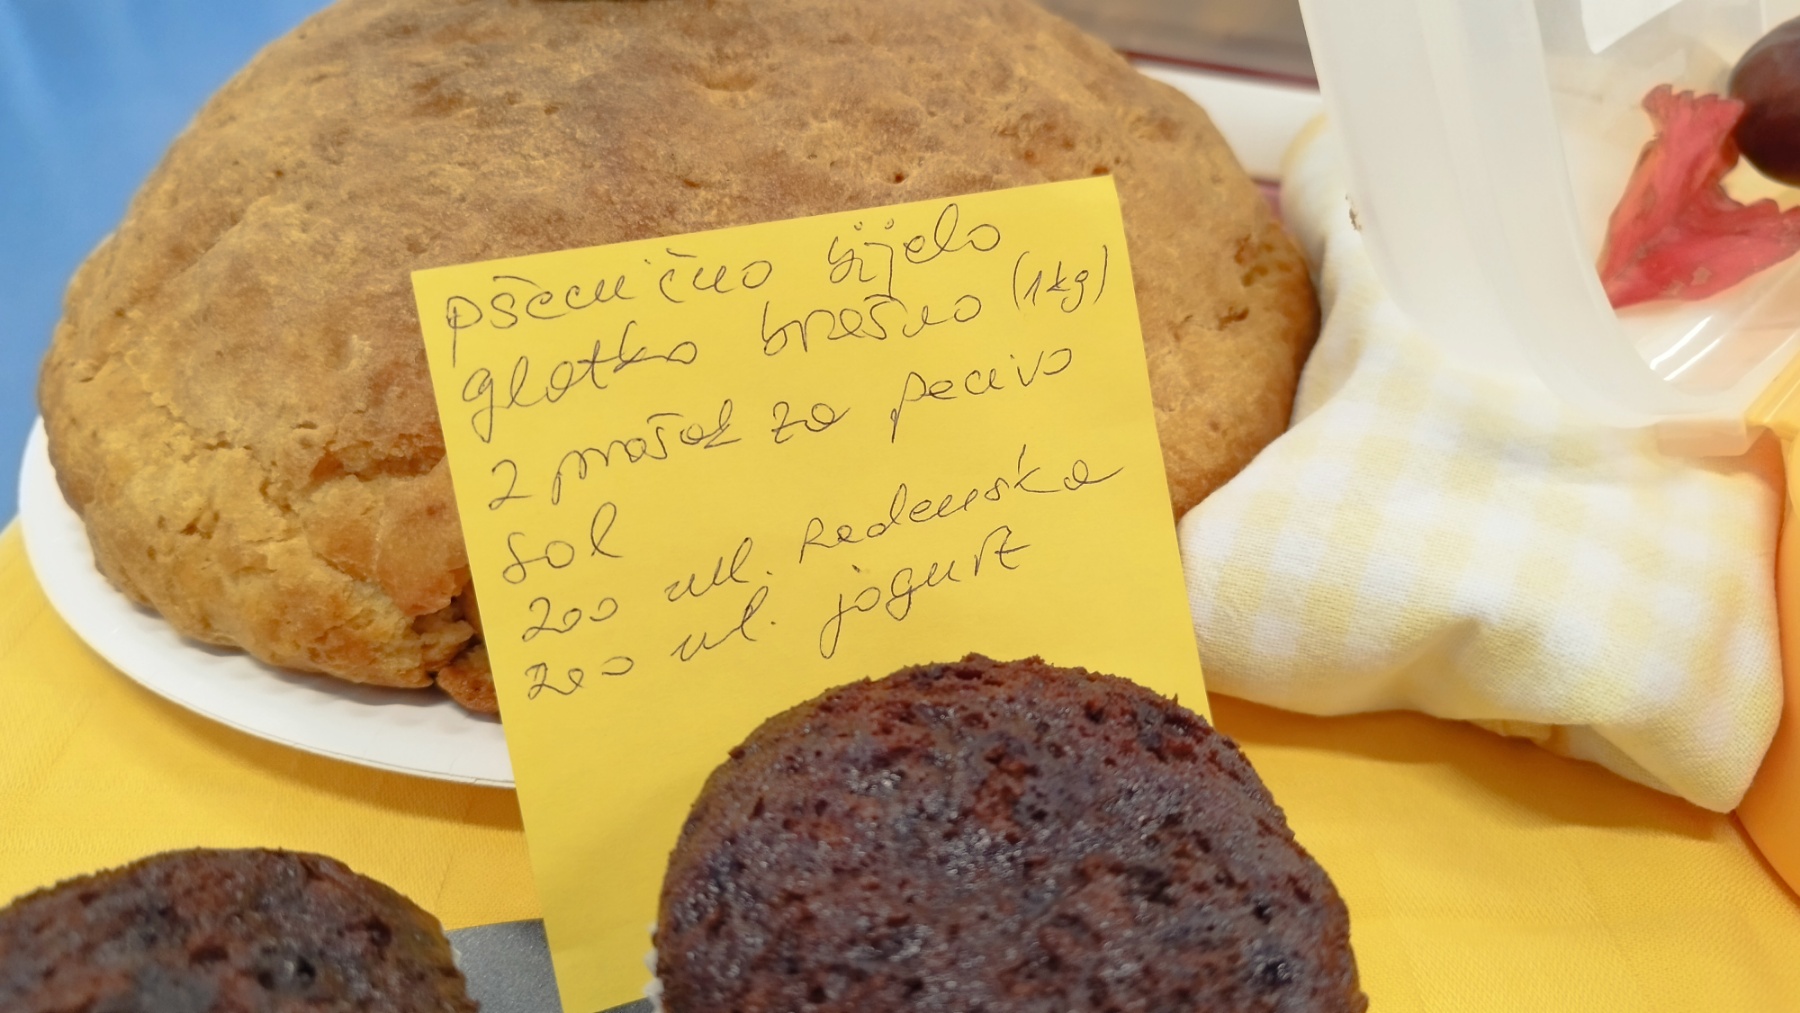 pšenično bijelo
glatko brašno (1kg)
2 prašak za pecivo
sol
200 ml. Radenska
200 ml. jogurt